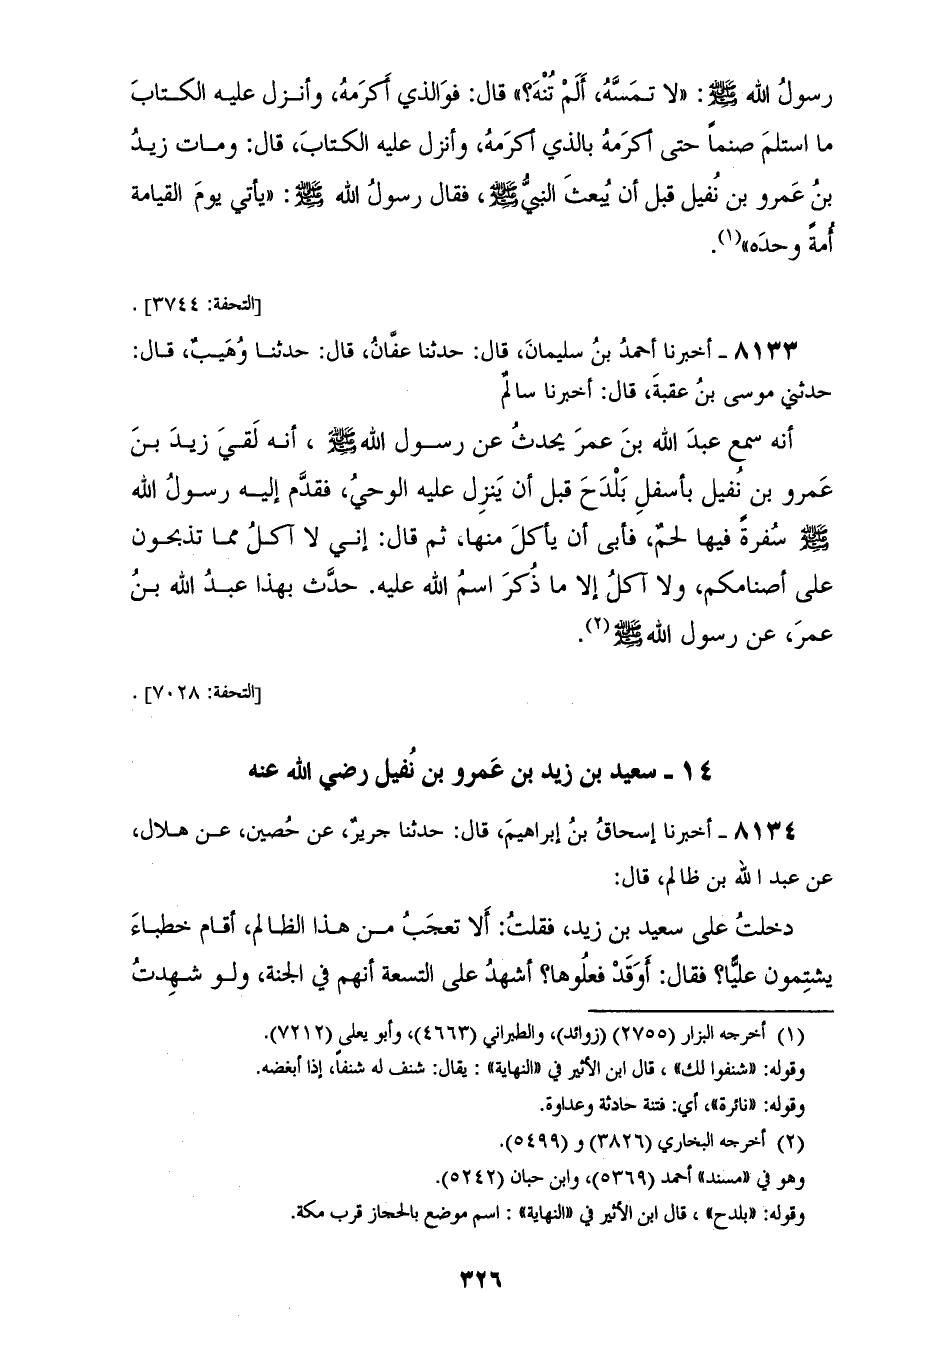 رسولُ الله ﷺ: «لا تمسَّهُ، أَلَمْ تُنْهَ؟» قال: فوَالذي أَكرَمهُ، وأنزل عليه الكتابَ
ما استلمَ صنماً حتى أكرَمهُ بالذي أكرَمهُ، وأنزل عليه الكتابَ، قال: ومات زيدُ
بنُ عَمرو بن نُفيل قبل أن يُبعثَ النبيُّ ﷺ، فقال رسولُ الله ﷺ: «يأتي يومَ القيامة
أُمةً وحدَه»(١).
[التحفة: ٣٧٤٤] .
٨١٣٣ ـ أخبرنا أحمدُ بنُ سليمانَ، قال: حدثنا عفَّانُ، قال: حدثنا وُهَيبٌ، قال:
حدثني موسى بنُ عقبةَ، قال: أخبرنا سالمٌ
أنه سمع عبدَ الله بنَ عمرَ يحدثُ عن رسول الله ﷺ ، أنه لَقيَ زيدَ بنَ
عَمرو بن نُفيل بأسفلِ بَلْدَحَ قبل أن يَنزِل عليه الوحيُ، فقدَّم إليه رسولُ الله
ﷺ سُفرةً فيها لحمٌ، فأبى أن يأكلَ منها، ثم قال: إني لا آكلُ مما تذبحون
على أصنامكم، ولا آكلُ إلا ما ذُكرَ اسمُ الله عليه. حدَّث بهذا عبدُ الله بنُ
عمرَ، عن رسول الله ﷺ(٢).
[التحفة: ٧٠٢٨] .
١٤ ـ سعيد بن زيد بن عَمرو بن نُفيل رضي الله عنه
٨١٣٤ ـ أخبرنا إسحاقُ بنُ إبراهيمَ، قال: حدثنا جريرٌ، عن حُصين، عن هلال،
عن عبد الله بن ظالم، قال:
دخلتُ على سعيد بن زيد، فقلتُ: ألا تعجَبُ من هذا الظالم، أقام خطباءَ
يشتِمون عليًّا؟ فقال: أَوَقَدْ فعلُوها؟ أشهدُ على التسعة أنهم في الجنة، ولو شهِدتُ
(١) أخرجه البزار (٢٧٥٥) (زوائد)، والطبراني (٤٦٦٣)، وأبو يعلى (٧٢١٢).
وقوله: «شنفوا لك» ، قال ابن الأثير في «النهاية» : يقال: شنف له شنفاً، إذا أبغضه.
وقوله: «نائرة»، أي: فتنة حادثة وعداوة.
(٢) أخرجه البخاري (٣٨٢٦) و (٥٤٩٩).
وهو في «مسند» أحمد (٥٣٦٩)، وابن حبان (٥٢٤٢).
وقوله: «بلدح» ، قال ابن الأثير في «النهاية» : اسم موضع بالحجاز قرب مكة.
٣٢٦